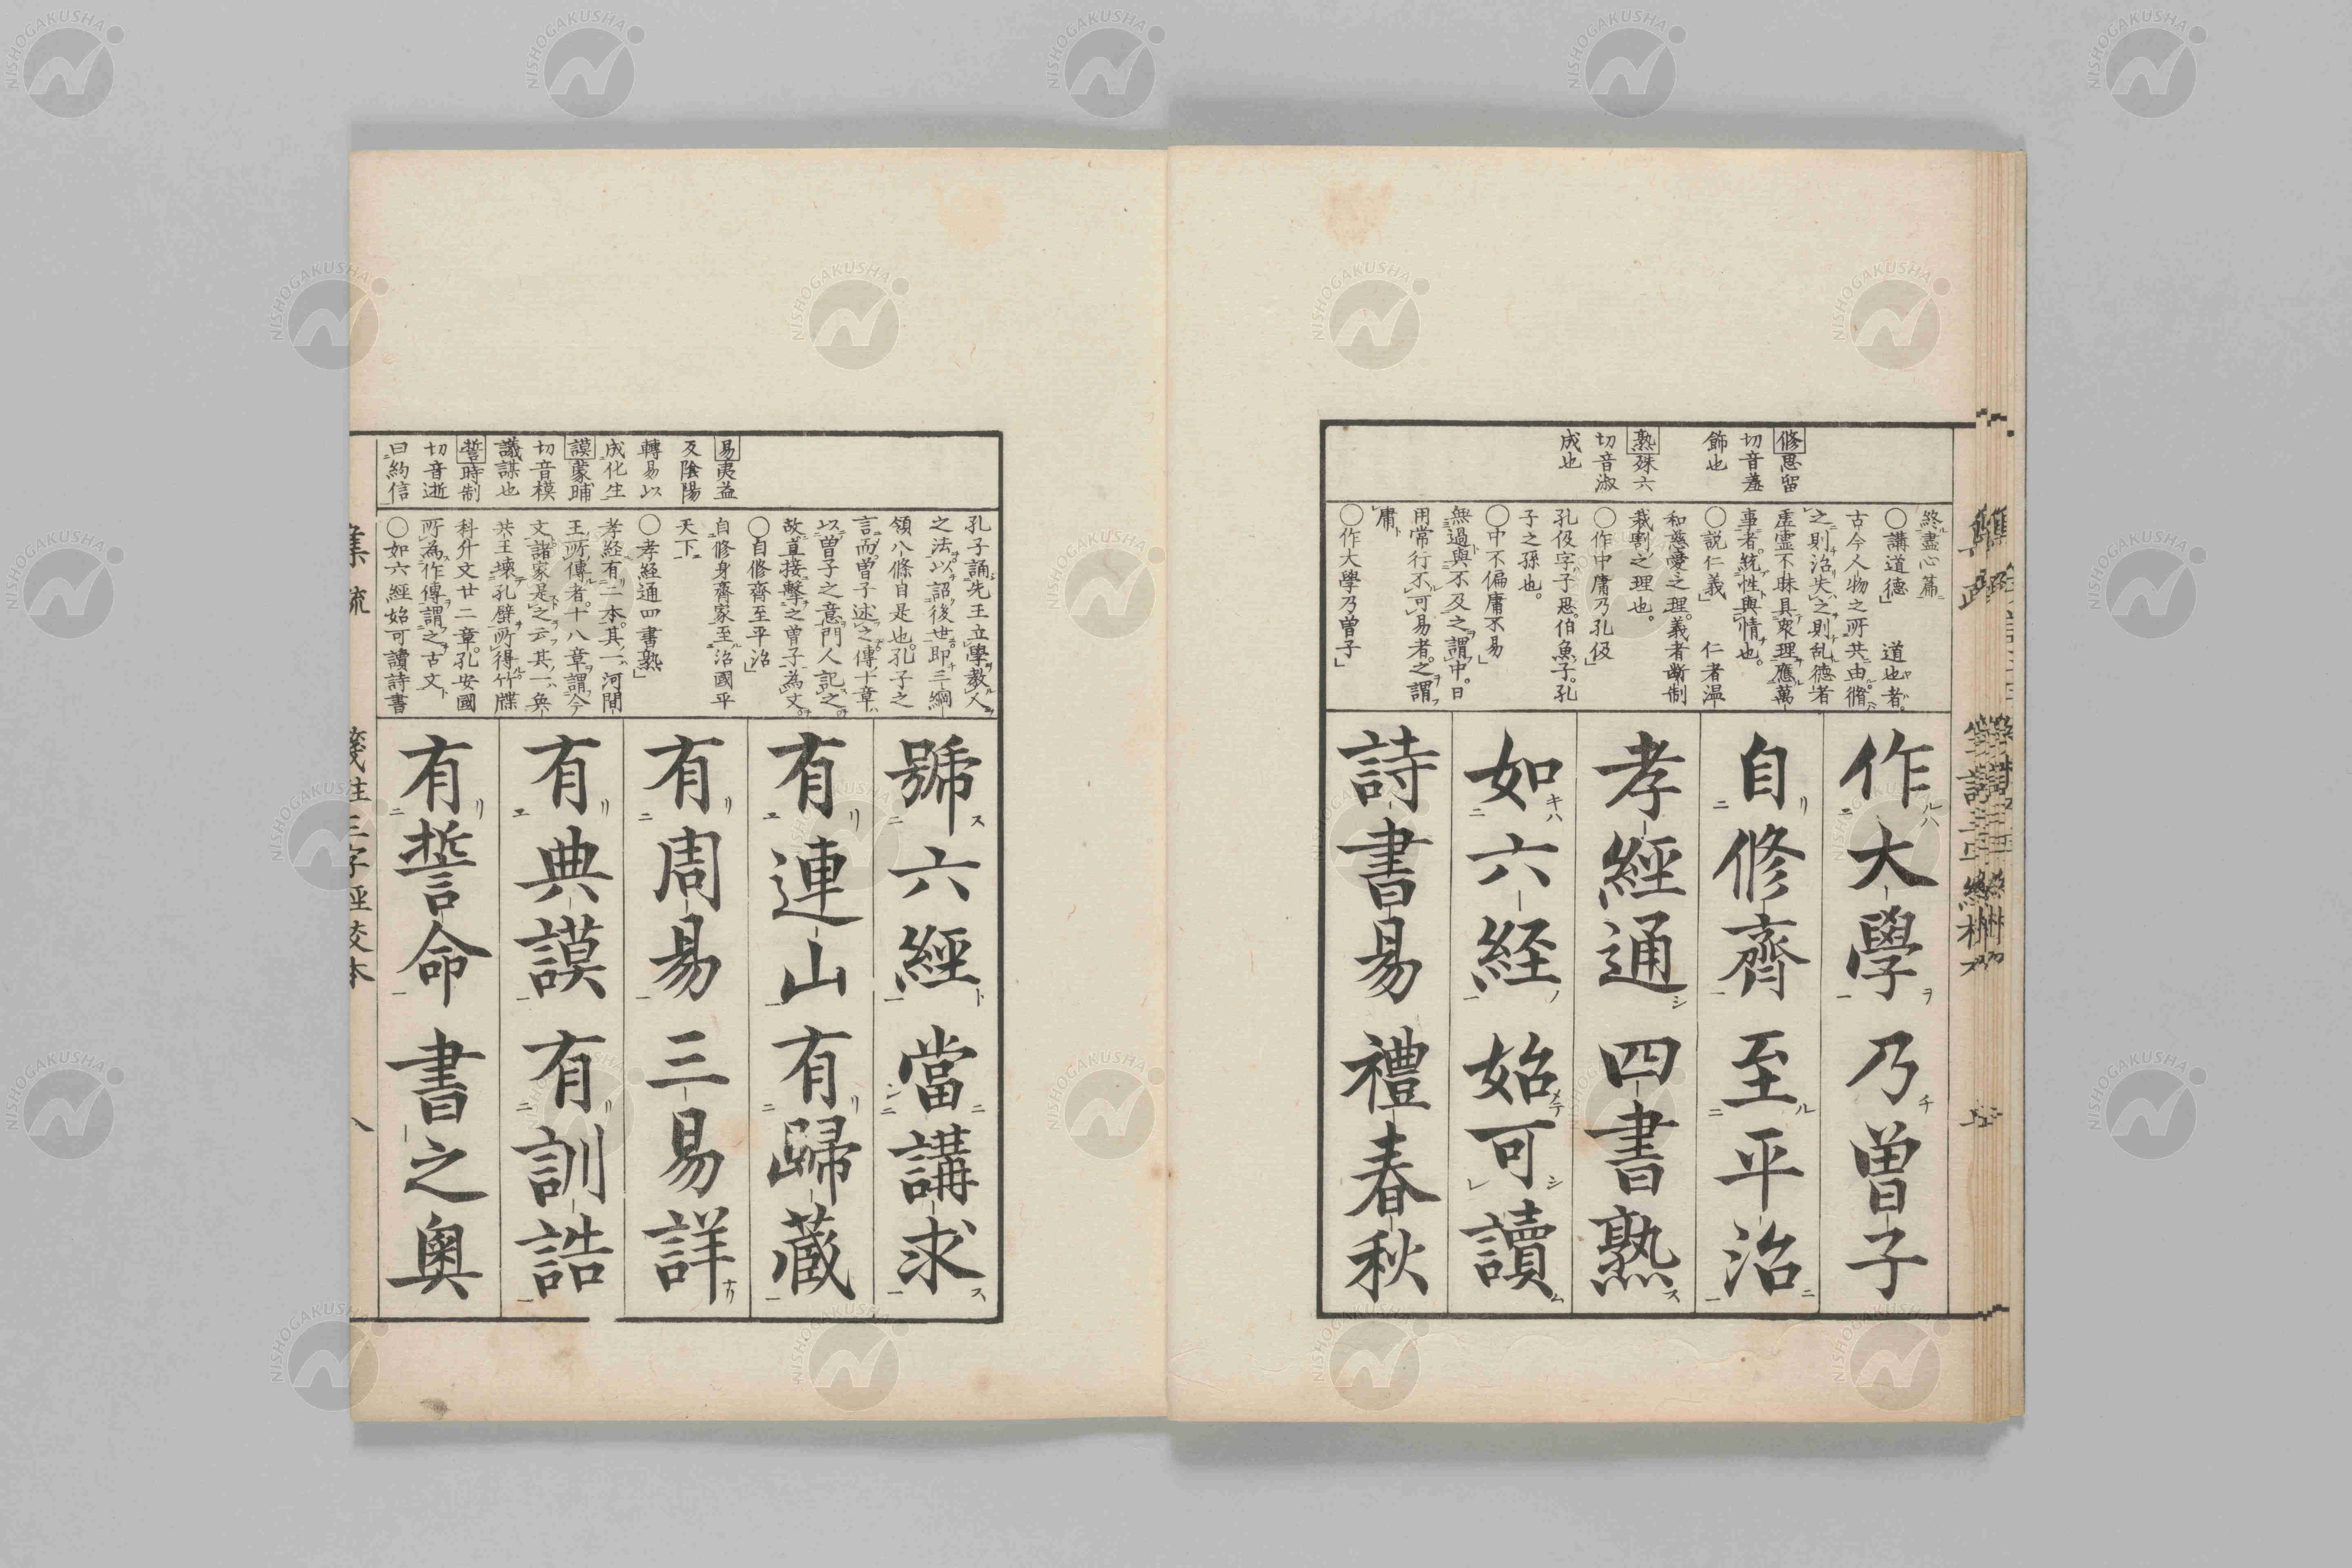 修思留
切音羞
飾也
熟殊六
切音淑
成也
終盡心篇
○講道德」 道也者。
古今人物之所共由脩
之則治失之則乱德者
虛靈不昧具衆理應萬
事者。統性與情也。
○説仁義」 仁者温
和慈愛之理。義者斷制
裁割之理也。
○作中庸乃孔伋」
孔伋字子思伯魚子。孔
子之孫也。
○中不偏庸不易」
無過與不及之謂中。日
用常行不可易者。之謂
庸
○作大學乃曽子」
作ルハ大學ヲ乃チ曽子
自リ修齊至ル平治ニ
孝經通シ四書熟ス
如キハ六経ノ始メテ可シ讀ム
詩書易禮春秋
易夷益
反陰陽
轉易以
成化生
謨蒙晡
切音模
議謀也
誓時制
切音逝
曰約信
孔子誦先王立學教人
之法以詔後世即三綱
領八條自是也。孔子之
言而。曽子述之傳十章
以曽子之意門人記之。
故直接擊之曽子為文。
○自修齊至平治」
自修身齊家至治國平
天下
○孝経通四書熟」
孝経有二本。其一河間
王所傳者。十八章謂今
文諸家是之云其一奐
共王壊孔壁所得竹牒
科斗文廿二章。孔安國
所為作傳謂之古文
○如六經始可讀詩書
號ス六經ト當ニ講求ス
有リ連山有リ歸藏
有リ周易三易詳ナリ
有リ典謨有リ訓誥
有リ誓命書之奥
集疏 箋註三字經校本 八